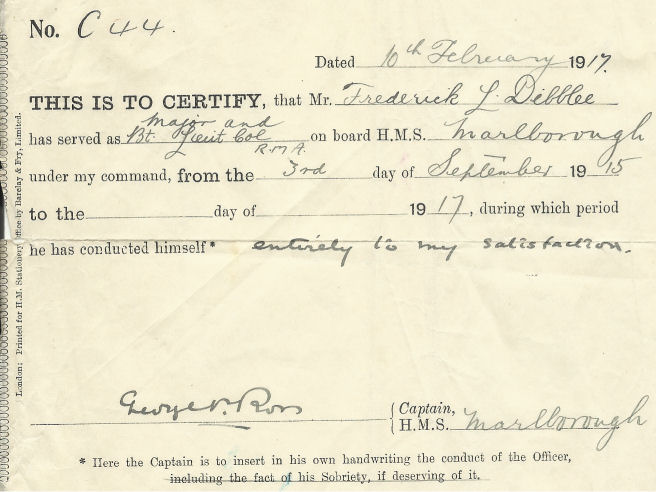 No. C 44.
Dated 10th February 1917.
THIS IS TO CERTIFY, that Mr. Frederick L. Dibblee
Major and
has served as Bt. Lieut Col on board H.M.S. Marlborough
R.M.A.
under my command, from the 3rd day of September 1915
to the day of 1917, during which period
he has conducted himself* entirely to my satisfaction.
George P. Ross
Captain,
H.M.S. Marlborough
* Here the Captain is to insert in his own handwriting the conduct of the Officer,
including the fact of his Sobriety, if deserving of it.
London: Printed for H.M. Stationery Office by Barclay & Fry, Limited.